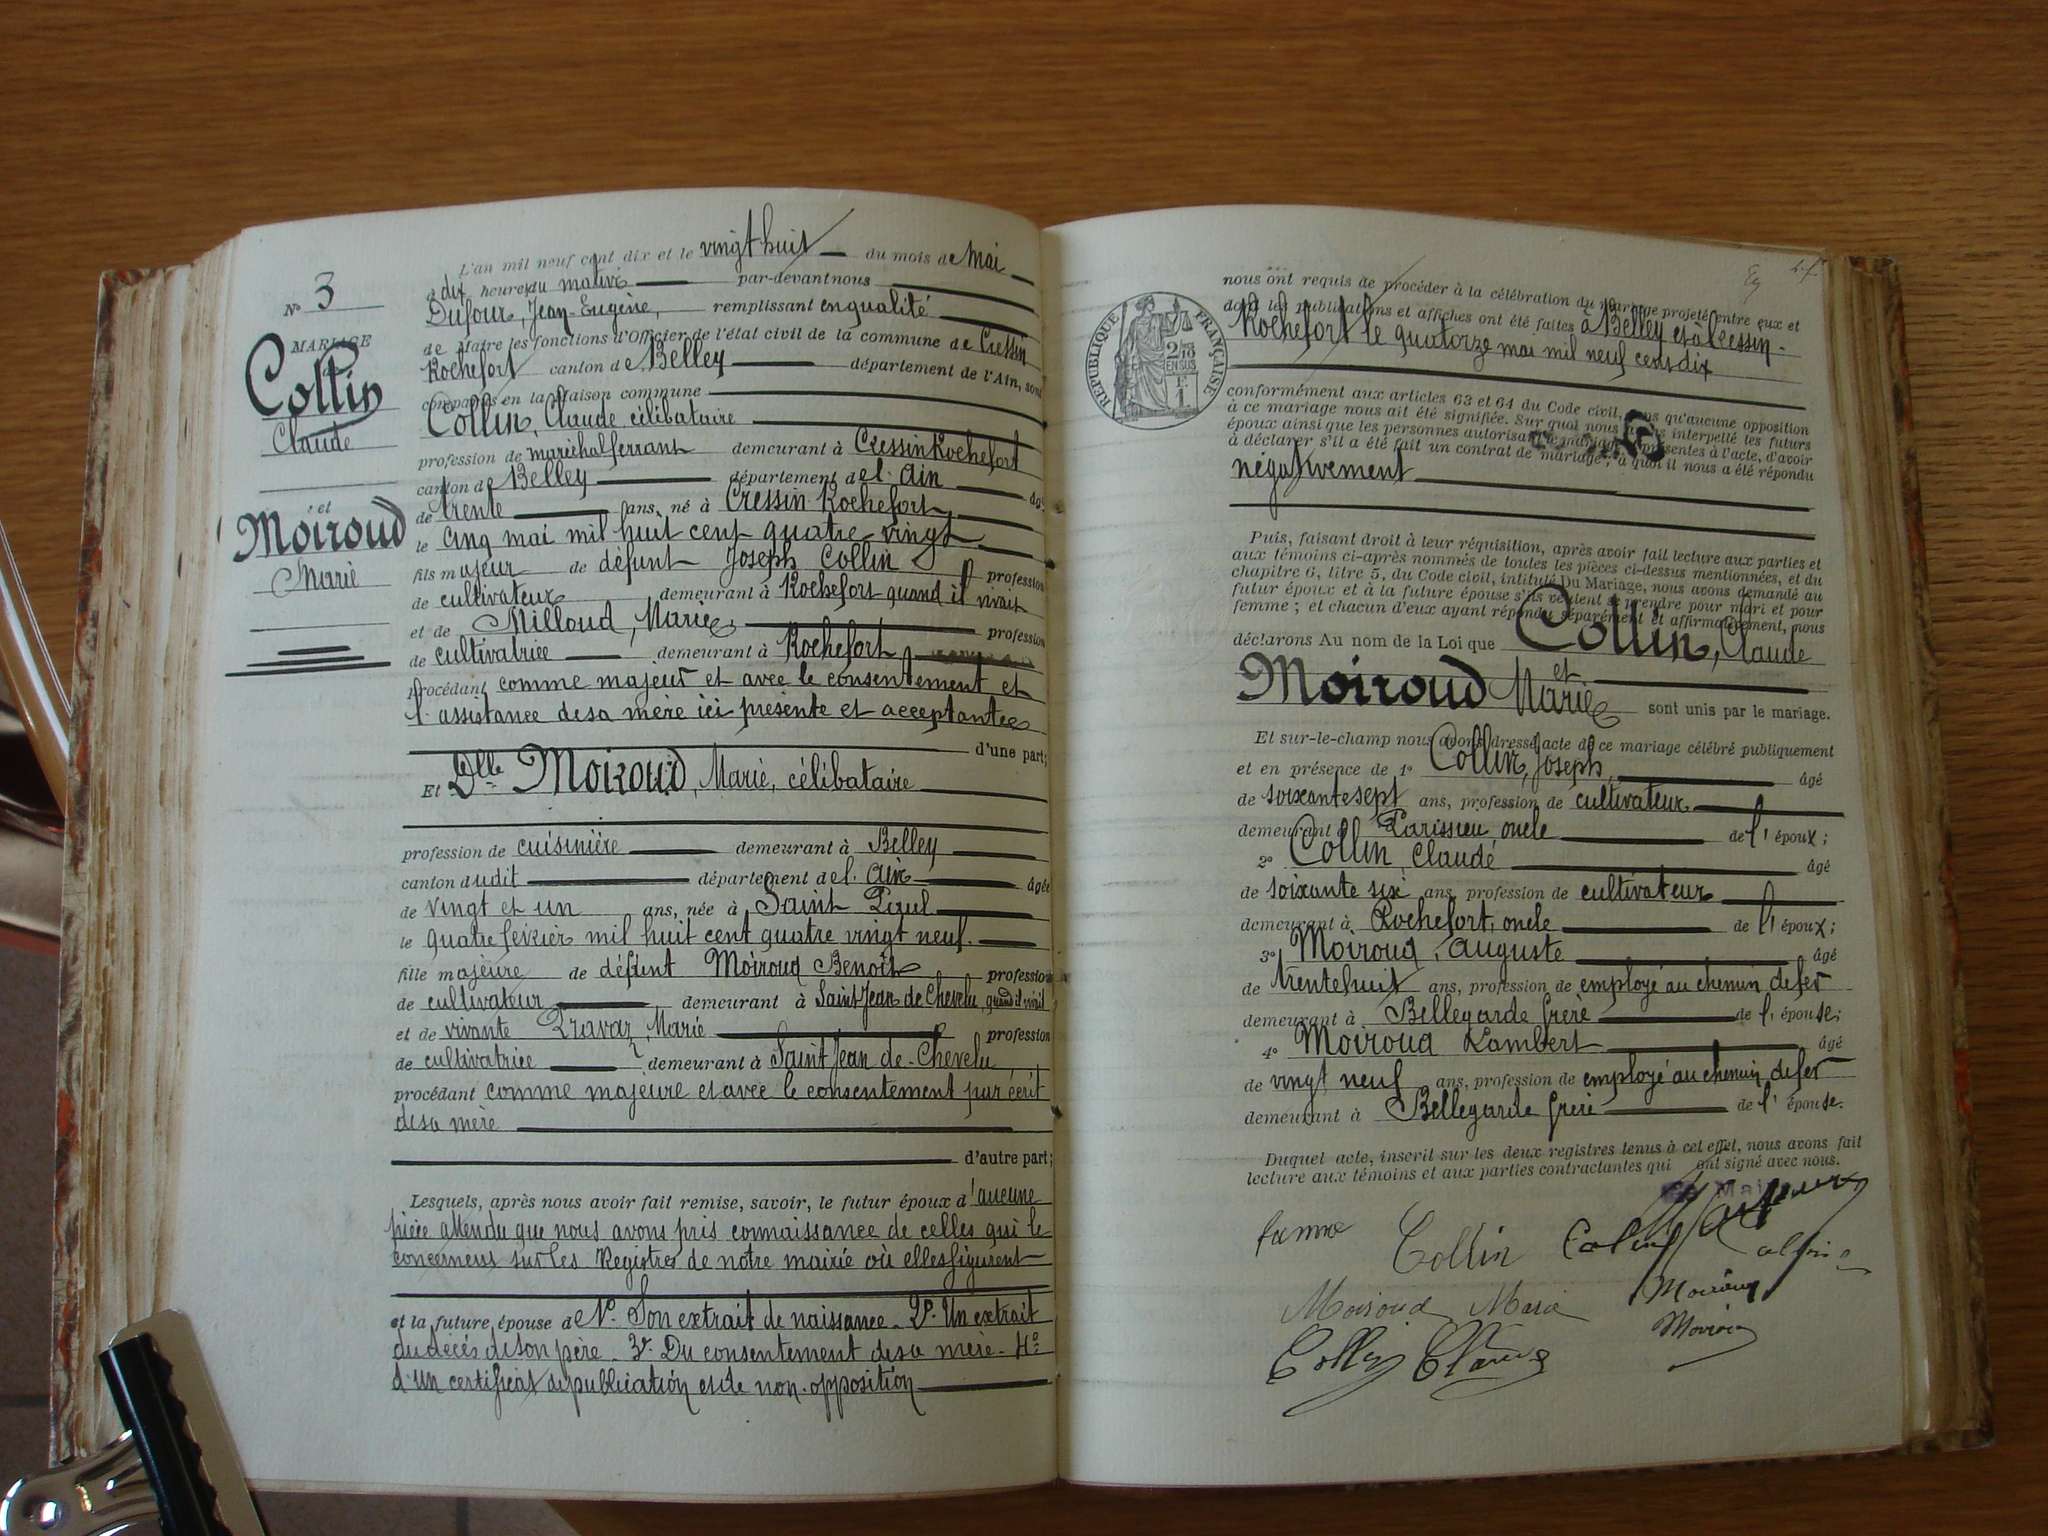 L'an mil neuf cent dix et le vingt huit du mois de Mai
à dix heures du matin par-devant nous
Dufour, Jean-Eugène, remplissant en qualité
de Maire les fonctions d'Officier de l'état civil de la commune de Cressin
Rochefort canton de Belley département de l'Ain, sont
comparus en la Maison commune
Collin, Claude célibataire
profession de maréchal ferrant demeurant à Cressin Rochefort
canton de Belley département de l'Ain âgé
de trente ans, né à Cressin-Rochefort
le cinq mai mil huit cent quatre-vingt
fils majeur de défunt Joseph Collin profession
de cultivateur demeurant à Rochefort quand il vivait
et de Milloud, Marie profession
de cultivatrice demeurant à Rochefort
procédant comme majeur et avec le consentement et
l'assistance de sa mère ici présente et acceptante
d'une part;
Et Dlle Moiroud, Marie, célibataire
profession de cuisinière demeurant à Belley
canton dudit département de l'Ain âgée
de vingt et un ans, née à Saint Paul
le quatre février mil huit cent quatre vingt neuf
fille majeure de défunt Moiroud Benoît profession
de cultivateur demeurant à Saint Jean de Chevelu, quand il vivait
et de vivante Travaz, Marie profession
de cultivatrice demeurant à Saint Jean-de-Chevelu
procédant comme majeure et avec le consentement par écrit
de sa mère
d'autre part;
Lesquels, après nous avoir fait remise, savoir, le futur époux d'aucune
pièce attendu que nous avons pris connaissance de celles qui le
concernent sur les Registres de notre mairie où elles figurent
et la future épouse de 1º Son extrait de naissance - 2º Un extrait
du décès de son père - 3º Du consentement de sa mère - 4º
d'un certificat de publication et de non-opposition
Nº 3
MARIAGE
Collin
Claude
et
Moiroud
Marie
RÉPUBLIQUE FRANÇAISE
2/10
EN SUS
1 F.
nous ont requis de procéder à la célébration du mariage projeté entre eux et
dont les publications et affiches ont été faites à Belley et à Cressin-
Rochefort le quatorze mai mil neuf cent dix
conformément aux articles 63 et 64 du Code civil, sans qu'aucune opposition
à ce mariage nous ait été signifiée. Sur quoi nous avons interpellé les futurs
époux ainsi que les personnes autorisant le mariage présentes à l'acte, d'avoir
à déclarer s'il a été fait un contrat de mariage; à quoi il nous a été répondu
négativement
Puis, faisant droit à leur réquisition, après avoir fait lecture aux parties et
aux témoins ci-après nommés de toutes les pièces ci-dessus mentionnées, et du
chapitre 6, litre 5, du Code civil, intitulé Du Mariage, nous avons demandé au
futur époux et à la future épouse s'ils veulent se prendre pour mari et pour
femme; et chacun d'eux ayant répondu séparément et affirmativement, nous
déclarons Au nom de la Loi que Collin, Claude
et
Moiroud Marie sont unis par le mariage.
Et sur-le-champ nous avons dressé acte de ce mariage célébré publiquement
et en présence de 1º Collin, Joseph, âgé
de soixante sept ans, profession de cultivateur
demeurant à Parissieu oncle de l'époux;
2º Collin Claude âgé
de soixante six ans, profession de cultivateur
demeurant à Rochefort, oncle de l'époux;
3º Moiroud, Auguste âgé
de trente huit ans, profession de employé au chemin de fer
demeurant à Bellegarde frère de l'épouse;
4º Moiroud Lambert âgé
de vingt neuf ans, profession de employé au chemin de fer
demeurant à Bellegarde frère de l'épouse.
Duquel acte, inscrit sur les deux registres tenus à cet effet, nous avons fait
lecture aux témoins et aux parties contractantes qui ont signé avec nous.
Collin
Moiroud Marie